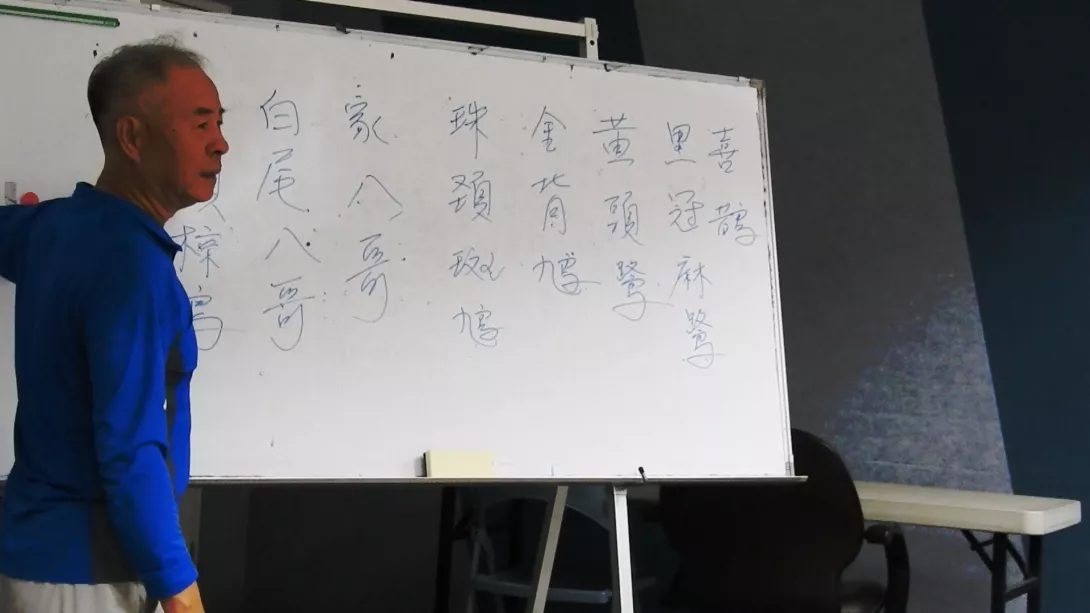 喜鵲
黑冠麻鷺
黃頭鷺
金背鳩
珠頸斑鳩
家八哥
白尾八哥
椋鳥